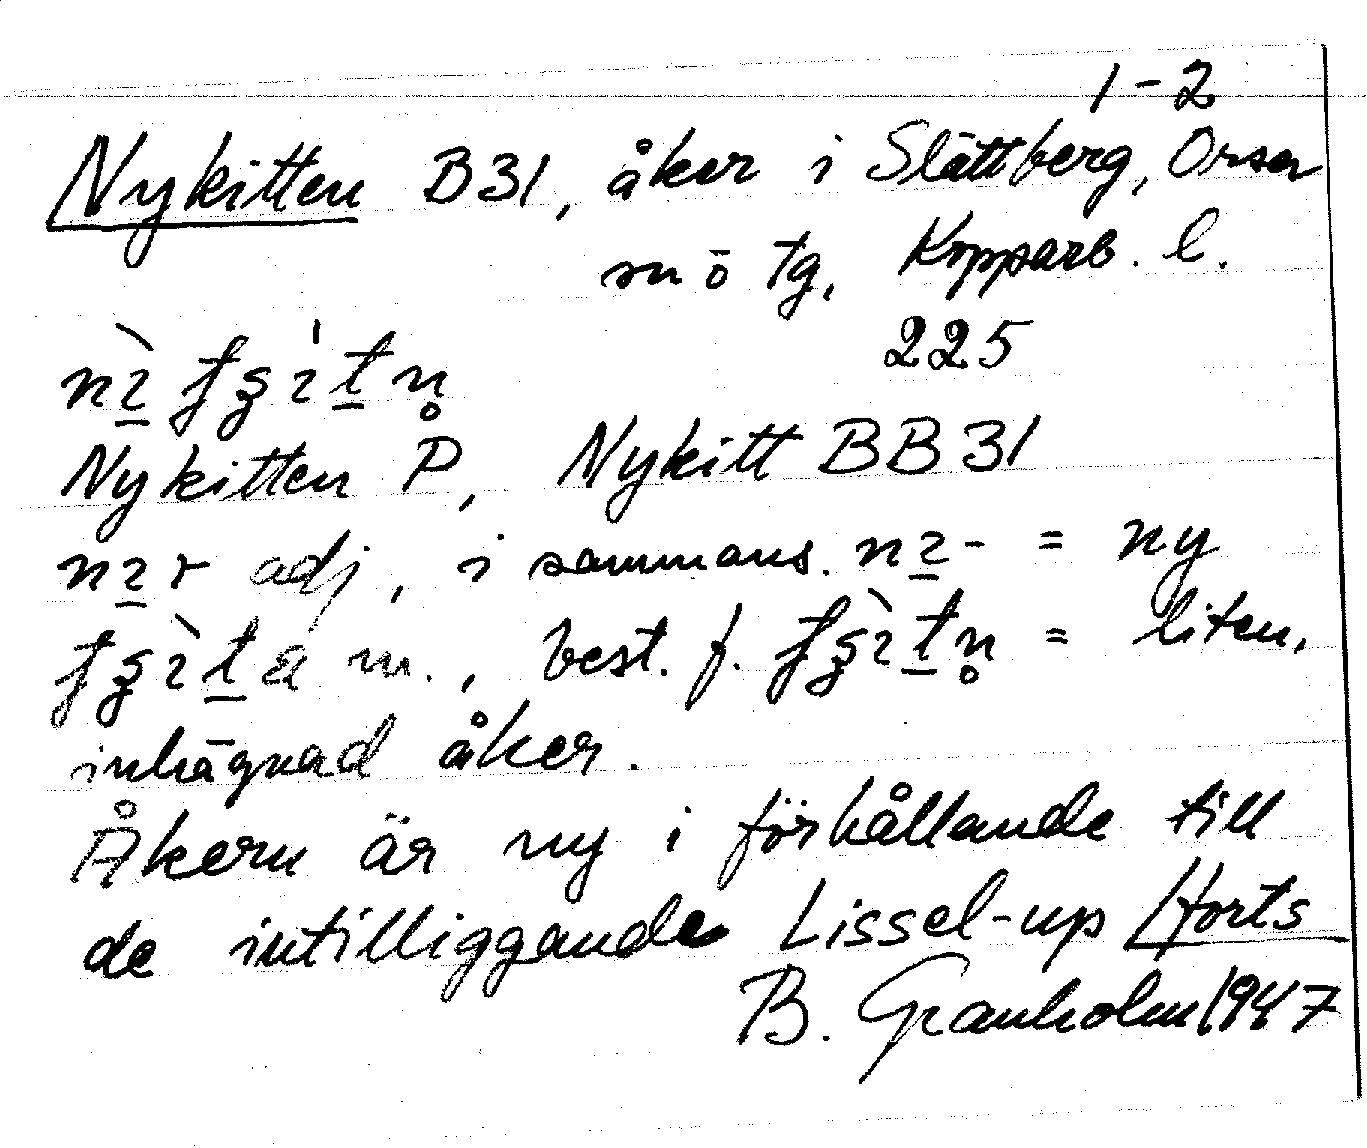 1-2
Nykitten B31, åker i Slättberg, Orsa
sn ö tg, Kopparb. l.
225
Nykitten P, Nykitt BB31
adj, i sammans. = ny
m., best. f. = liten,
inhägnad åker.
Åkern är ny i förhållande till
de intilliggande Lissel-up /forts
B. Granholm 1947